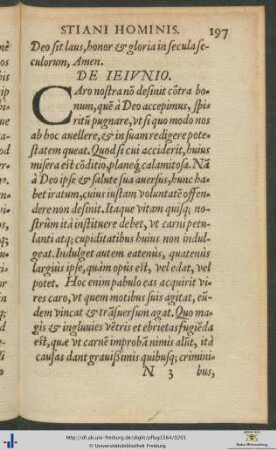 STIANI HOMINIS. 197
Deo sit laus, honor & gloria in secula se-
culorum, Amen.
DE IEIVNIO.
CAro nostra nō desinit cōtra bo-
num, quē à Deo accepimus, spi-
ritū pugnare, vt si quo modo nos
ab hoc auellere, & in suam redigere pote-
statem queat. Quod si cui acciderit, huius
misera est cōditio, planeq́; calamitosa. Nā
à Deo ipse & salute sua auersus, hunc ha-
bet iratum, cuius iustam voluntatē offen-
dere non desinit. Itaque vitam quisq; no-
strûm ità instituere debet, vt carni petu-
lanti atq; cupiditatibus huius non indul-
geat. Indulget autem eatenùs, quatenùs
largiùs ipse, quàm opus est, vel edat, vel
potet. Hoc enim pabulo eas acquirit vi-
res caro, vt quem motibus suis agitat, eū-
dem vincat & trāsuersum agat. Quo ma-
gis & ingluuies vētris et ebrietas fugiēda
est, quæ vt carnē improbā nimis alūt, ità
causas dant grauißimis quibusq; crimini-
N 3 bus,
http://dl.ub.uni-freiburg.de/diglit/pflug1564/0201
© Universitätsbibliothek Freiburg